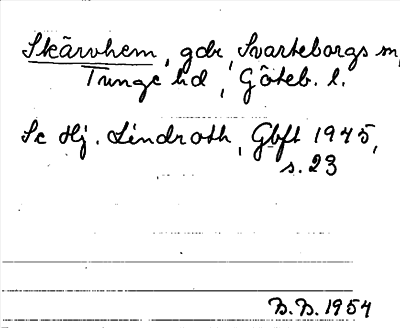 Skärvhem, gdr, Svarteborgs sn,
Tunge hd, Göteb. l.
Se Hj. Lindroth, Gbft 1945,
s. 23
B.B. 1954